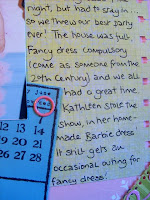 night, but had to stay in...
so we threw our best party
ever! The house was full.
Fancy dress compulsory
(come as someone from the
20th Century) and we all
had a great time.
Kathleen stole the
show, in her home-
made Barbie dress.
It still gets an
occasional outing for
fancy dress!
7
12 13 14
19 20 21
26 27 28